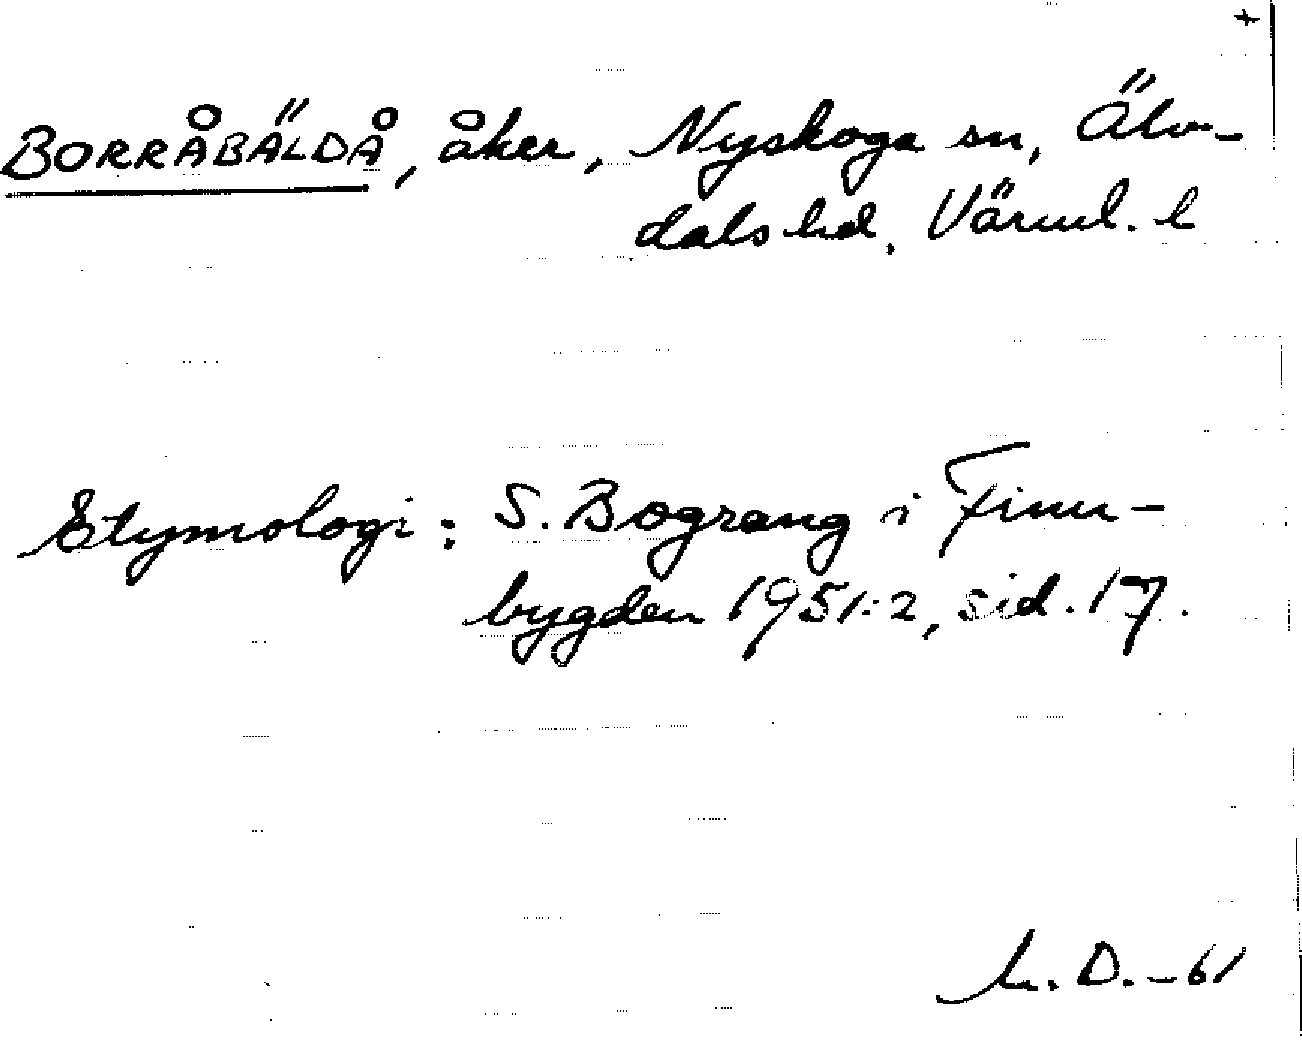 +
BORRÅBÄLDÅ, åker, Nyskoga sn, Älv-
dals hd, Värml. l
Etymologi: S. Bograng i Finn-
bygden 1951:2, sid. 17.
D. -61